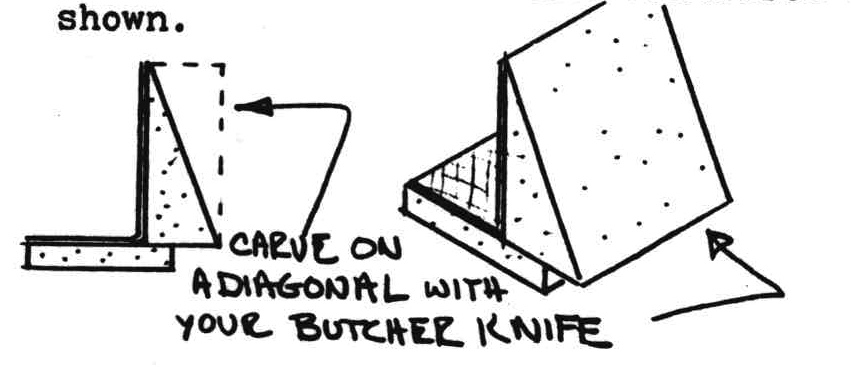 shown.
CARVE ON
A DIAGONAL WITH
YOUR BUTCHER KNIFE